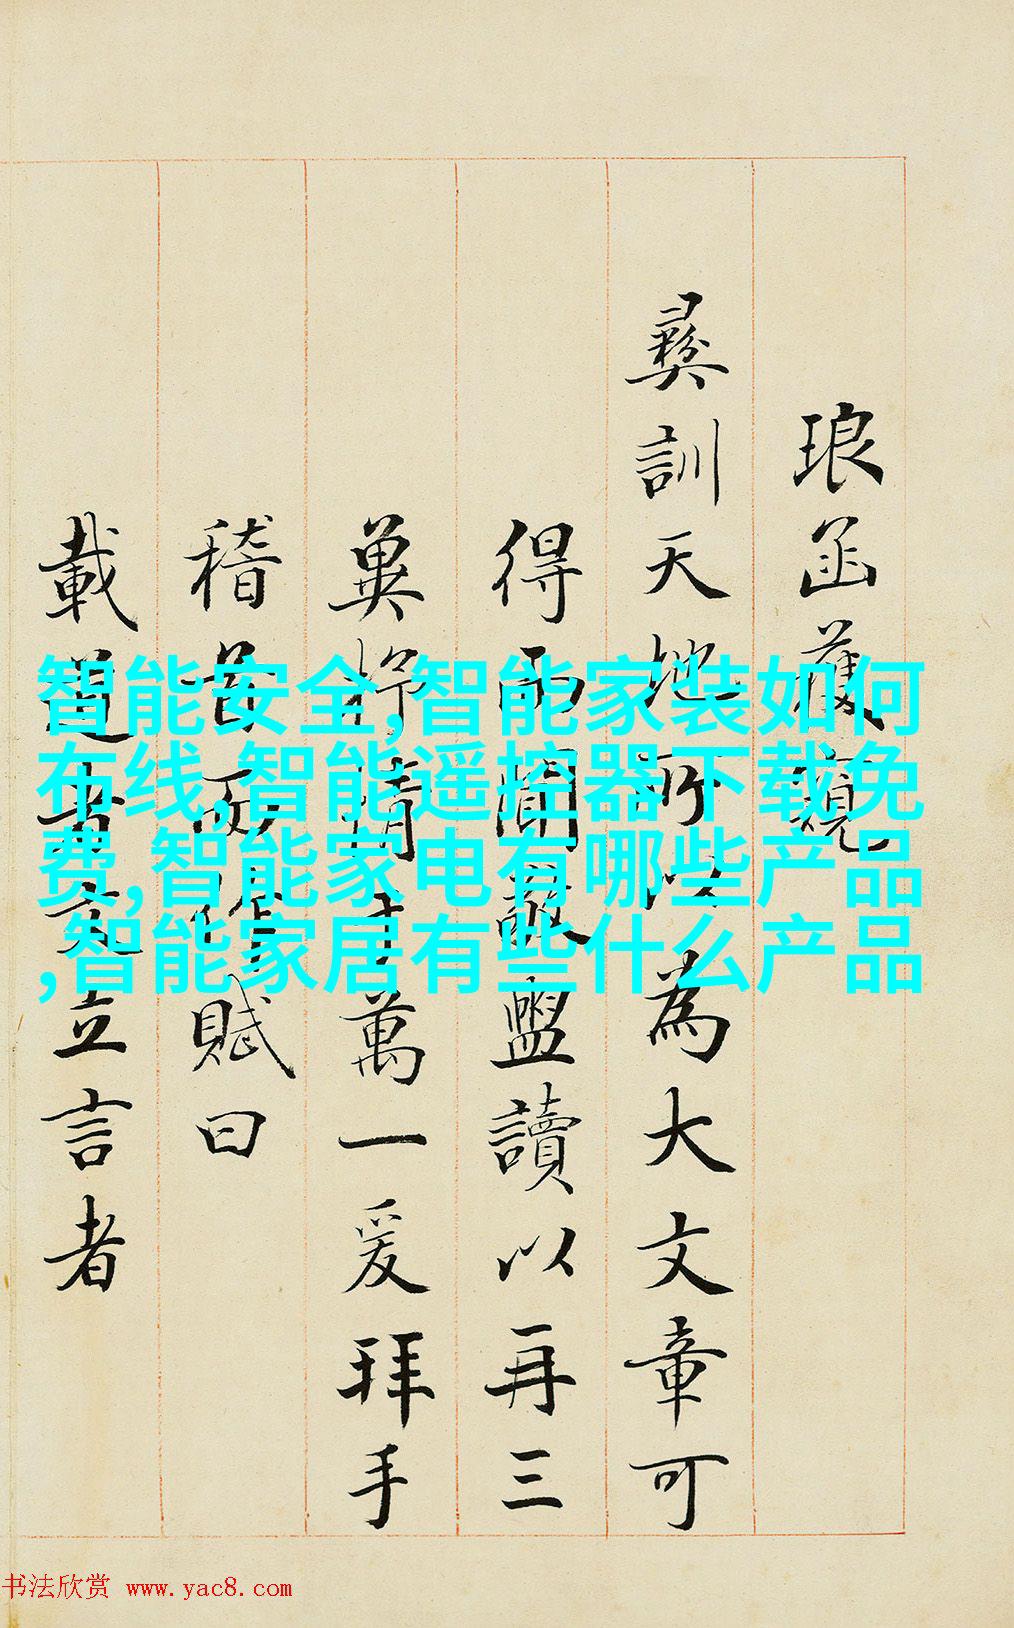 琅函獲窺
彞訓天地所以為大文章可
得而聞敬盥讀以再三
冀抒情于萬一爰拜手
稽首而作賦曰
載道者文立言者
智能安全,智能家装如何
布线,智能遥控器下载免
费,智能家电有哪些产品
,智能家居有些什么产品
书法欣赏 www.yac8.com